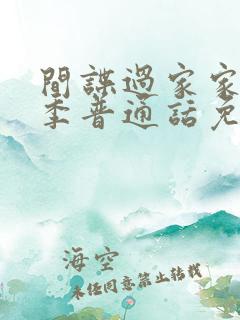 間諜過家家
季普通話免
海空
未経同意禁止转载